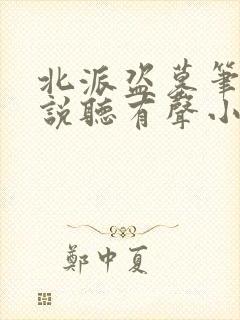 北派盗墓筆
說聽有聲小
鄭中夏